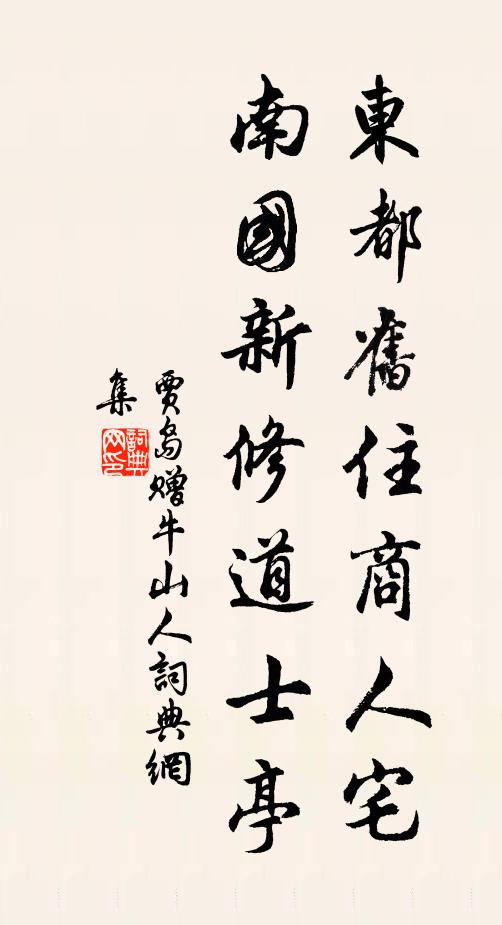 東都舊住商人宅
南國新修道士亭
賈島贈牛山人詞典網
集
詞典
网印